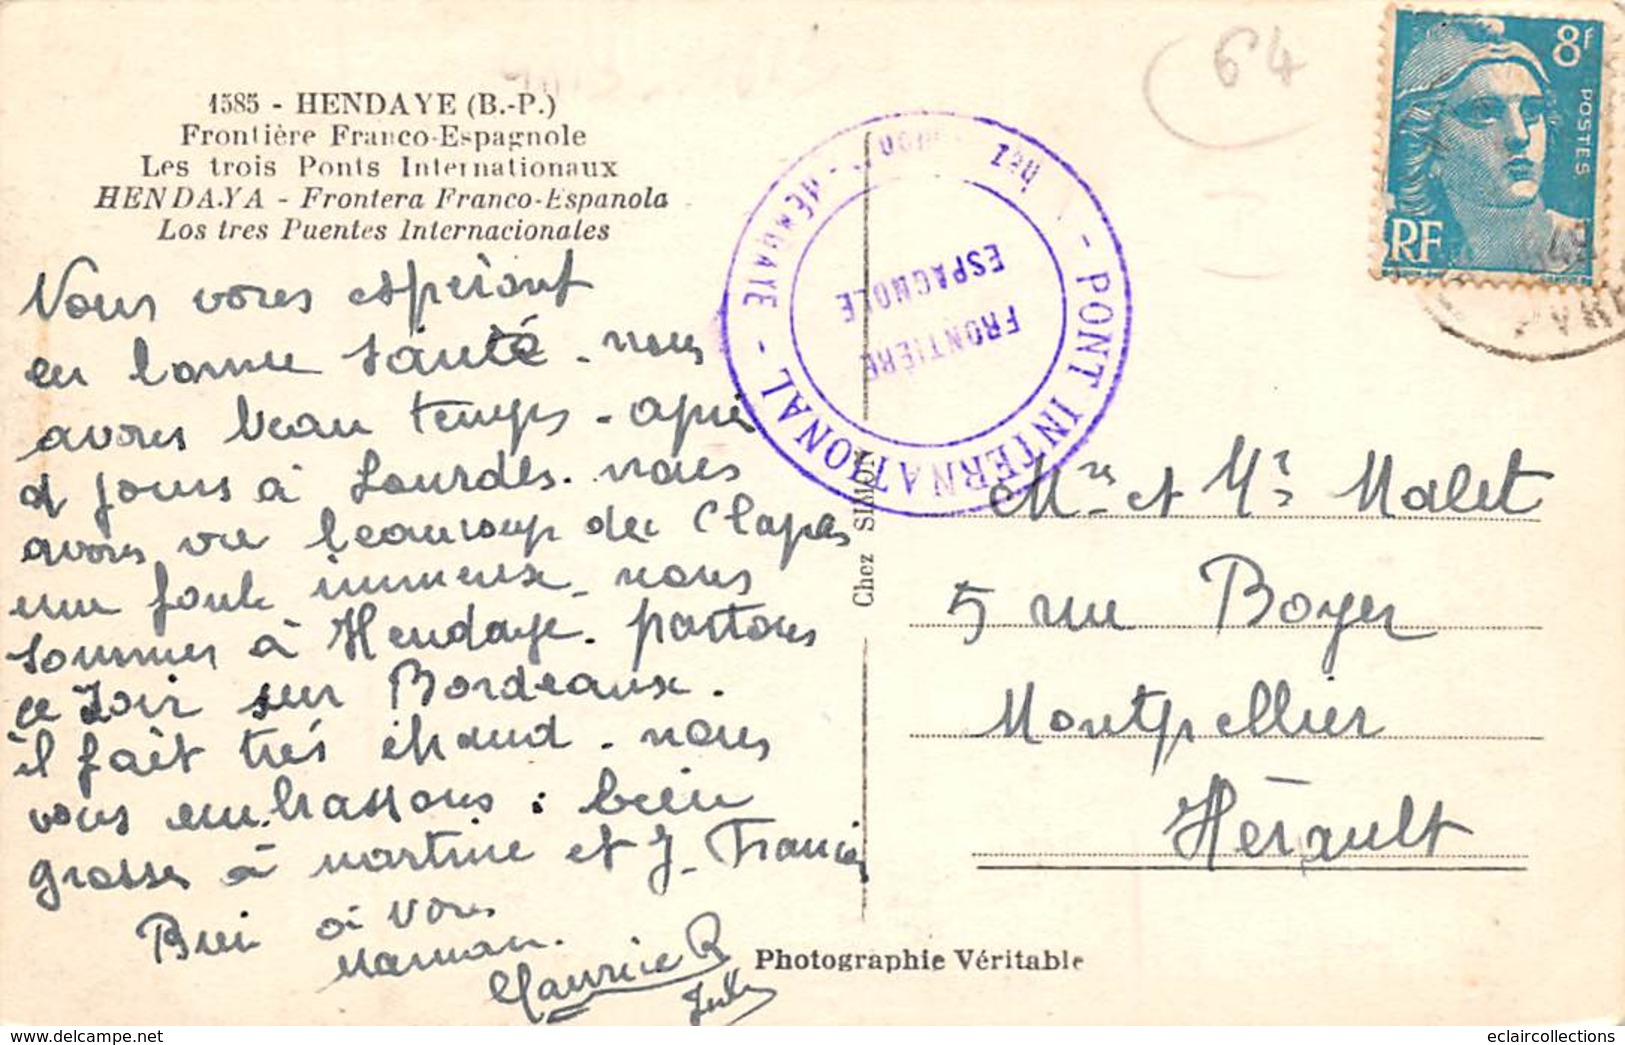 1585 - HENDAYE (B.-P.)
Frontière Franco-Espagnole
Les trois Ponts Internationaux
HENDAYA - Frontera Franco-Espanola
Los tres Puentes Internacionales
Vous vores espérant
en bonne santé. nous
avons beau temps. apri
4 jours à Lourdes. nous
avons vu beaucoup des Clapas
une foule immense. nous
sommes à Hendaye. partons
ce soir sur Bordeaux.
il fait très chaud. nous
vous embrassons: bien
grosses à martine et J. Francis
à vous
Maman.
Maurice R
Mr et Me Malet
5 rue Boyer
Montpellier
Hérault
Chez SIMON
Photographie Véritable
PONT INTERNATIONAL - HENDAYE -
FRONTIÈRE
ESPAGNOLE
64
8F
POSTES
RF
eclaircollections
www.delcampe.net